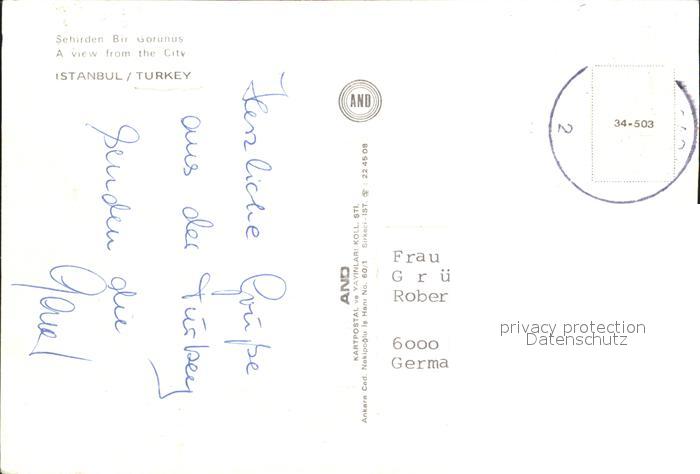 Şehirden Bir Görünüş
A view from the City
ISTANBUL / TURKEY
Herzliche Grüße
aus der Türkey
senden die
AND
AND
KARTPOSTAL ve YAYINLARI KOLL. ŞTİ.
Ankara Cad. Nakipoğlu İş Hanı No. 60/1 Sirkeci-İST. ☎ 22 45 08
34-503
2
Frau
Grü
Rober
6000
Germa
privacy protection
Datenschutz